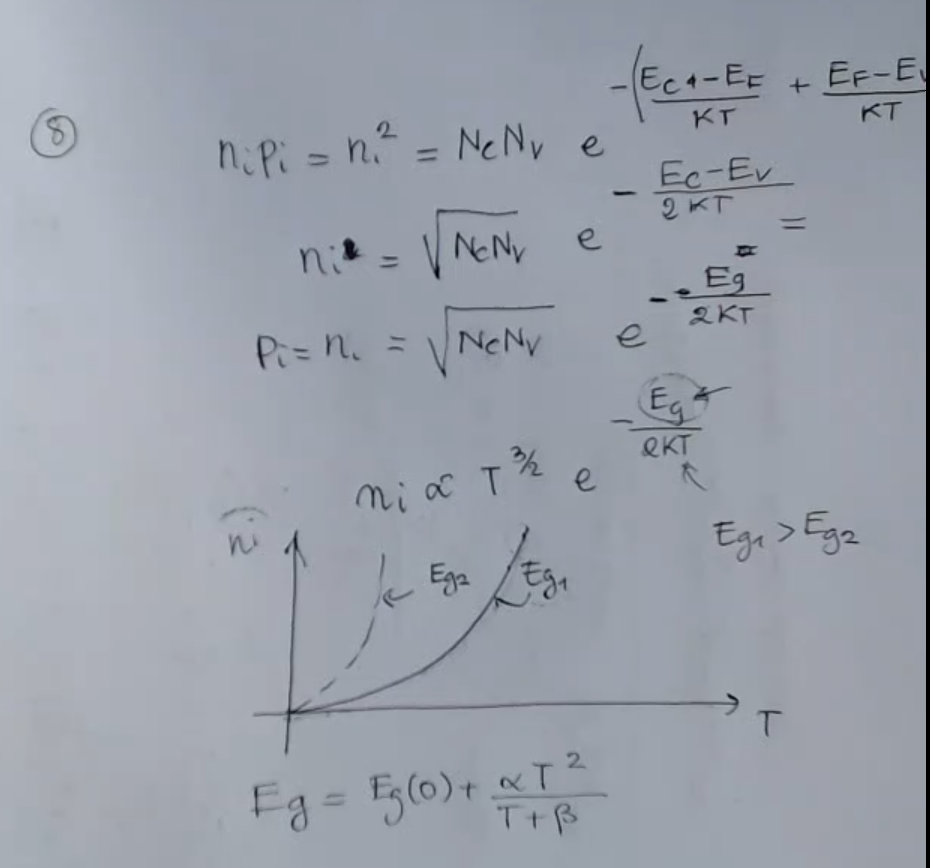 ⑧ nᵢpᵢ = nᵢ² = NcNv e^-(Ec-EF/KT + EF-Ev/KT
nᵢ = √NcNv e^-Ec-Ev/2KT =
Pᵢ = nᵢ = √NcNv e^-Eg/2KT
nᵢ ∝ T^3/2 e^-Eg/2KT
nᵢ Eg2 Eg1 Eg1 > Eg2
T
Eg = Eg(0) + αT²/T+β